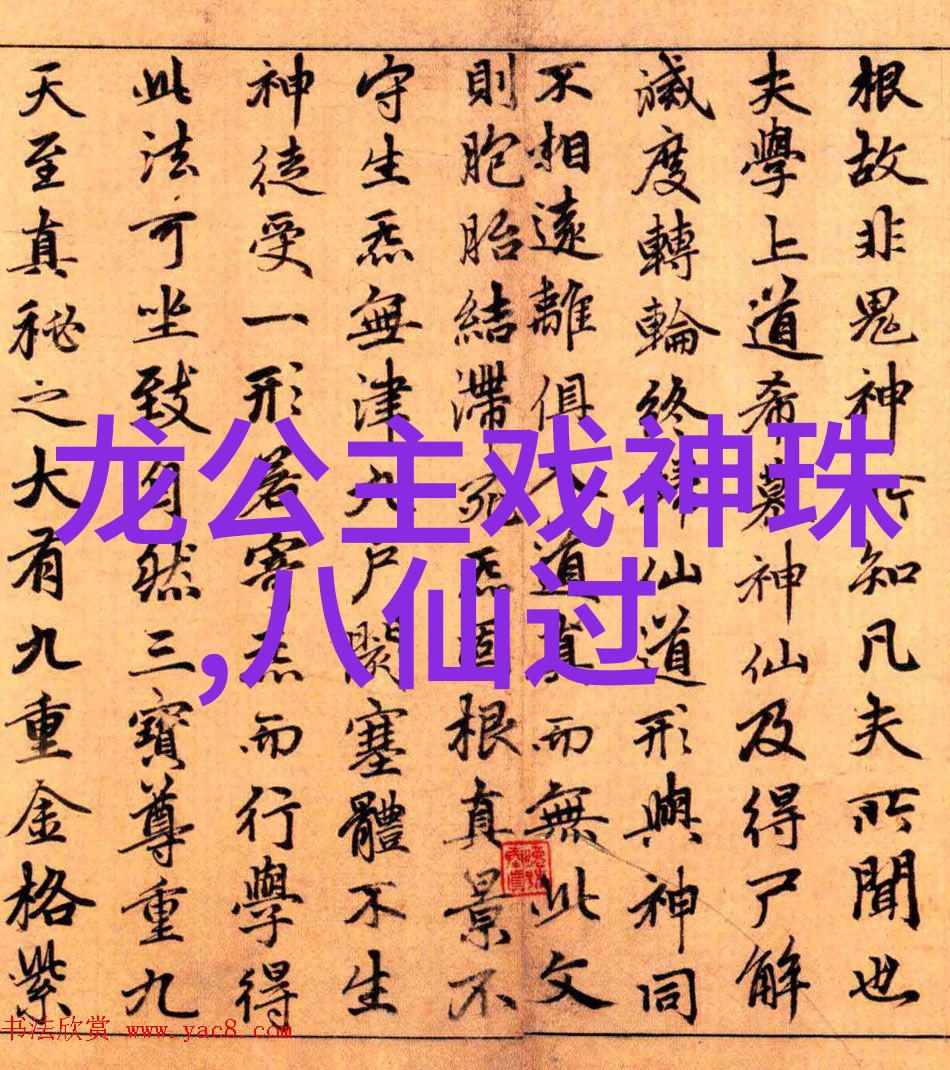 根故非鬼神所知凡夫所聞也
夫學上道希慕神仙及得尸解
滅度轉輪終歸仙道形與神同
不相遠離俱入道真而無此文
則胞胎結滯死炁固根真景不
守生炁無津九戶閇塞體不生
神徒受一形若寄炁而行學得
此法可坐致自然三寶尊重九
天至真秘之大有九重金格紫
龙公主戏神珠
,八仙过
书法欣赏 www.yac8.com